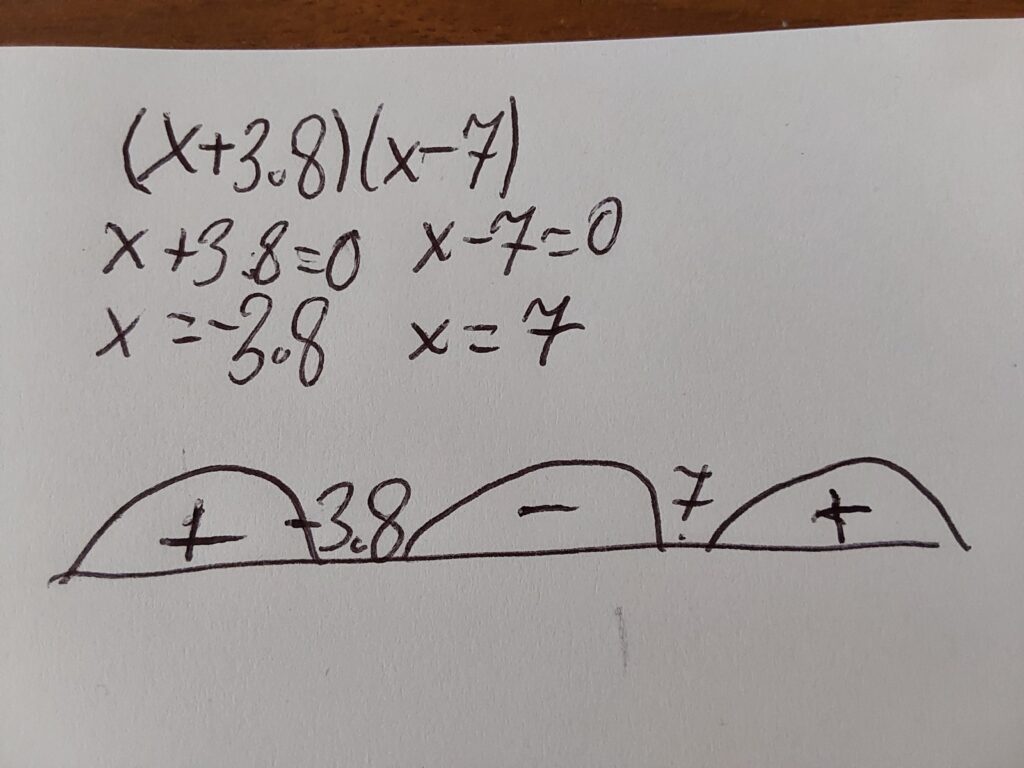 (x+3.8)(x-7)
x+3.8=0 x-7=0
x=-3.8 x=7
+ -3.8 - 7 +